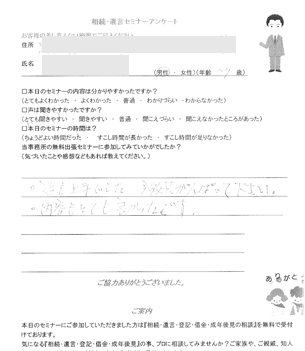 相続・遺言セミナーアンケート
お客様の差し支えない範囲でご記入ください
住所
氏名
(男性 ・ 女性)(年齢 歳)
□本日のセミナーの内容は分かりやすかったですか?
(とてもよくわかった ・ よくわかった ・ 普通 ・ わかりづらい ・わからなかった)
□声は聞きやすかったですか?
(とても聞きやすい ・ 聞きやすい ・ 普通 ・ 聞こえづらい ・ 聞こえなかったところがあった)
□本日のセミナーの時間は?
(ちょうどよい時間だった ・ すこし時間が長かった ・ すこし時間が足りなかった)
当事務所の無料出張セミナーに参加してみていかがでしたか?
(気づいたことや感想などもあれば教えてください。)
がんばって下さい。
・内容もとても良かったです。
ご協力ありがとうございました。
ありがと
ご案内
本日のセミナーにご参加していただきました方は『相続・遺言・登記・借金・成年後見の相談』を無料で受付
けております。
気になる『相続・遺言・登記・借金・成年後見』の事、プロに相談してみませんか?ご家族や、ご親戚、知人